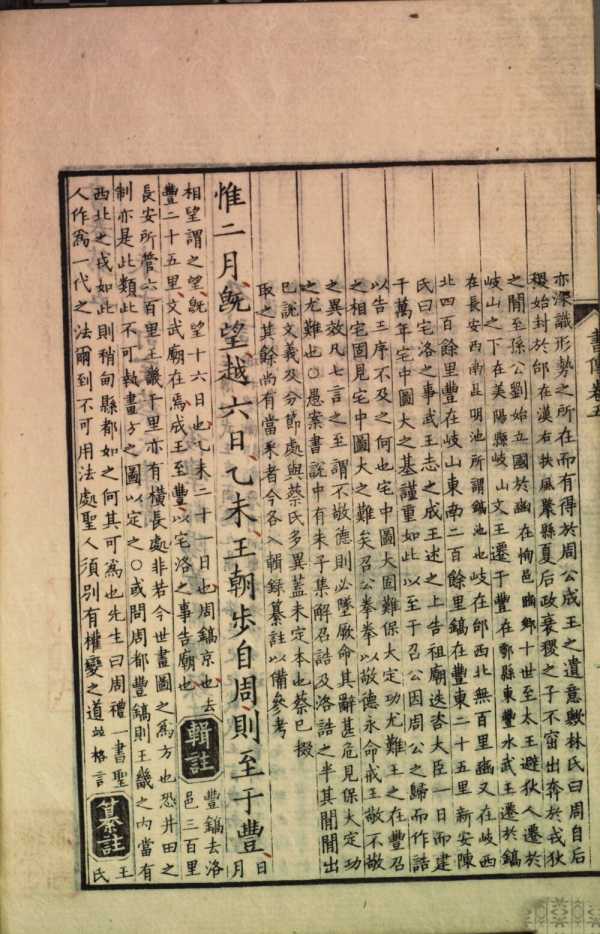 書傳卷五
亦深識形勢之所在而有得於周公成王之遺意歟林氏曰周自后
稷始封於邰在漢右扶風斄縣夏后政衰稷之子不窋出奔於戎狄
之間至孫公劉始立國於豳在栒邑豳鄉十世至太王避狄人遷於
岐山之下在美陽縣岐山文王遷于豐在鄠縣東豐水武王遷於鎬
在長安西南昆明池所謂鎬池也岐在邰西北無百里豳又在岐西
北四百餘里豐在岐山東南二百餘里鎬在豐東二十五里新安陳
氏曰宅洛之事武王志之成王述之上告祖廟迭咨大臣一日而建
千萬年宅中圖大之基謹重如此以至于召公因周公之歸而作誥
以告王序不及之何也宅中圖大固難保大定功尤難王之在豐召
之相宅固見宅中圖大之難矣召公拳拳以敬德永命戒王敬不敬
之異效凡七言之至謂不敬德則必墜厥命其辭甚危見保大定功
之尤難也○愚案書說中有朱子集解召誥及洛誥之半其間間出
已說文義及分節處與蔡氏多異蓋未定本也蔡已掇
取之其餘尚有當釆者今各入輯録纂註以備參考
惟二月旣望越六日乙未王朝步自周則至于豐 日月
相望謂之望旣望十六日也乙未二十一日也周鎬京也去
豐二十五里文武廟在焉成王至豐以宅洛之事告廟也 輯註 豐鎬去洛邑三百里
長安所管六百里王畿千里亦有橫長處非若今世畫圖之爲方也恐井田之
制亦是此類此不可執畫方之圖以定之○或問周都豐鎬則王畿之內當有
西北之戎如此則稍甸縣都如之何其可爲也先生曰周禮一書聖
人作爲一代之法爾到不可用法處聖人須別有權變之道並格言 纂註 王氏